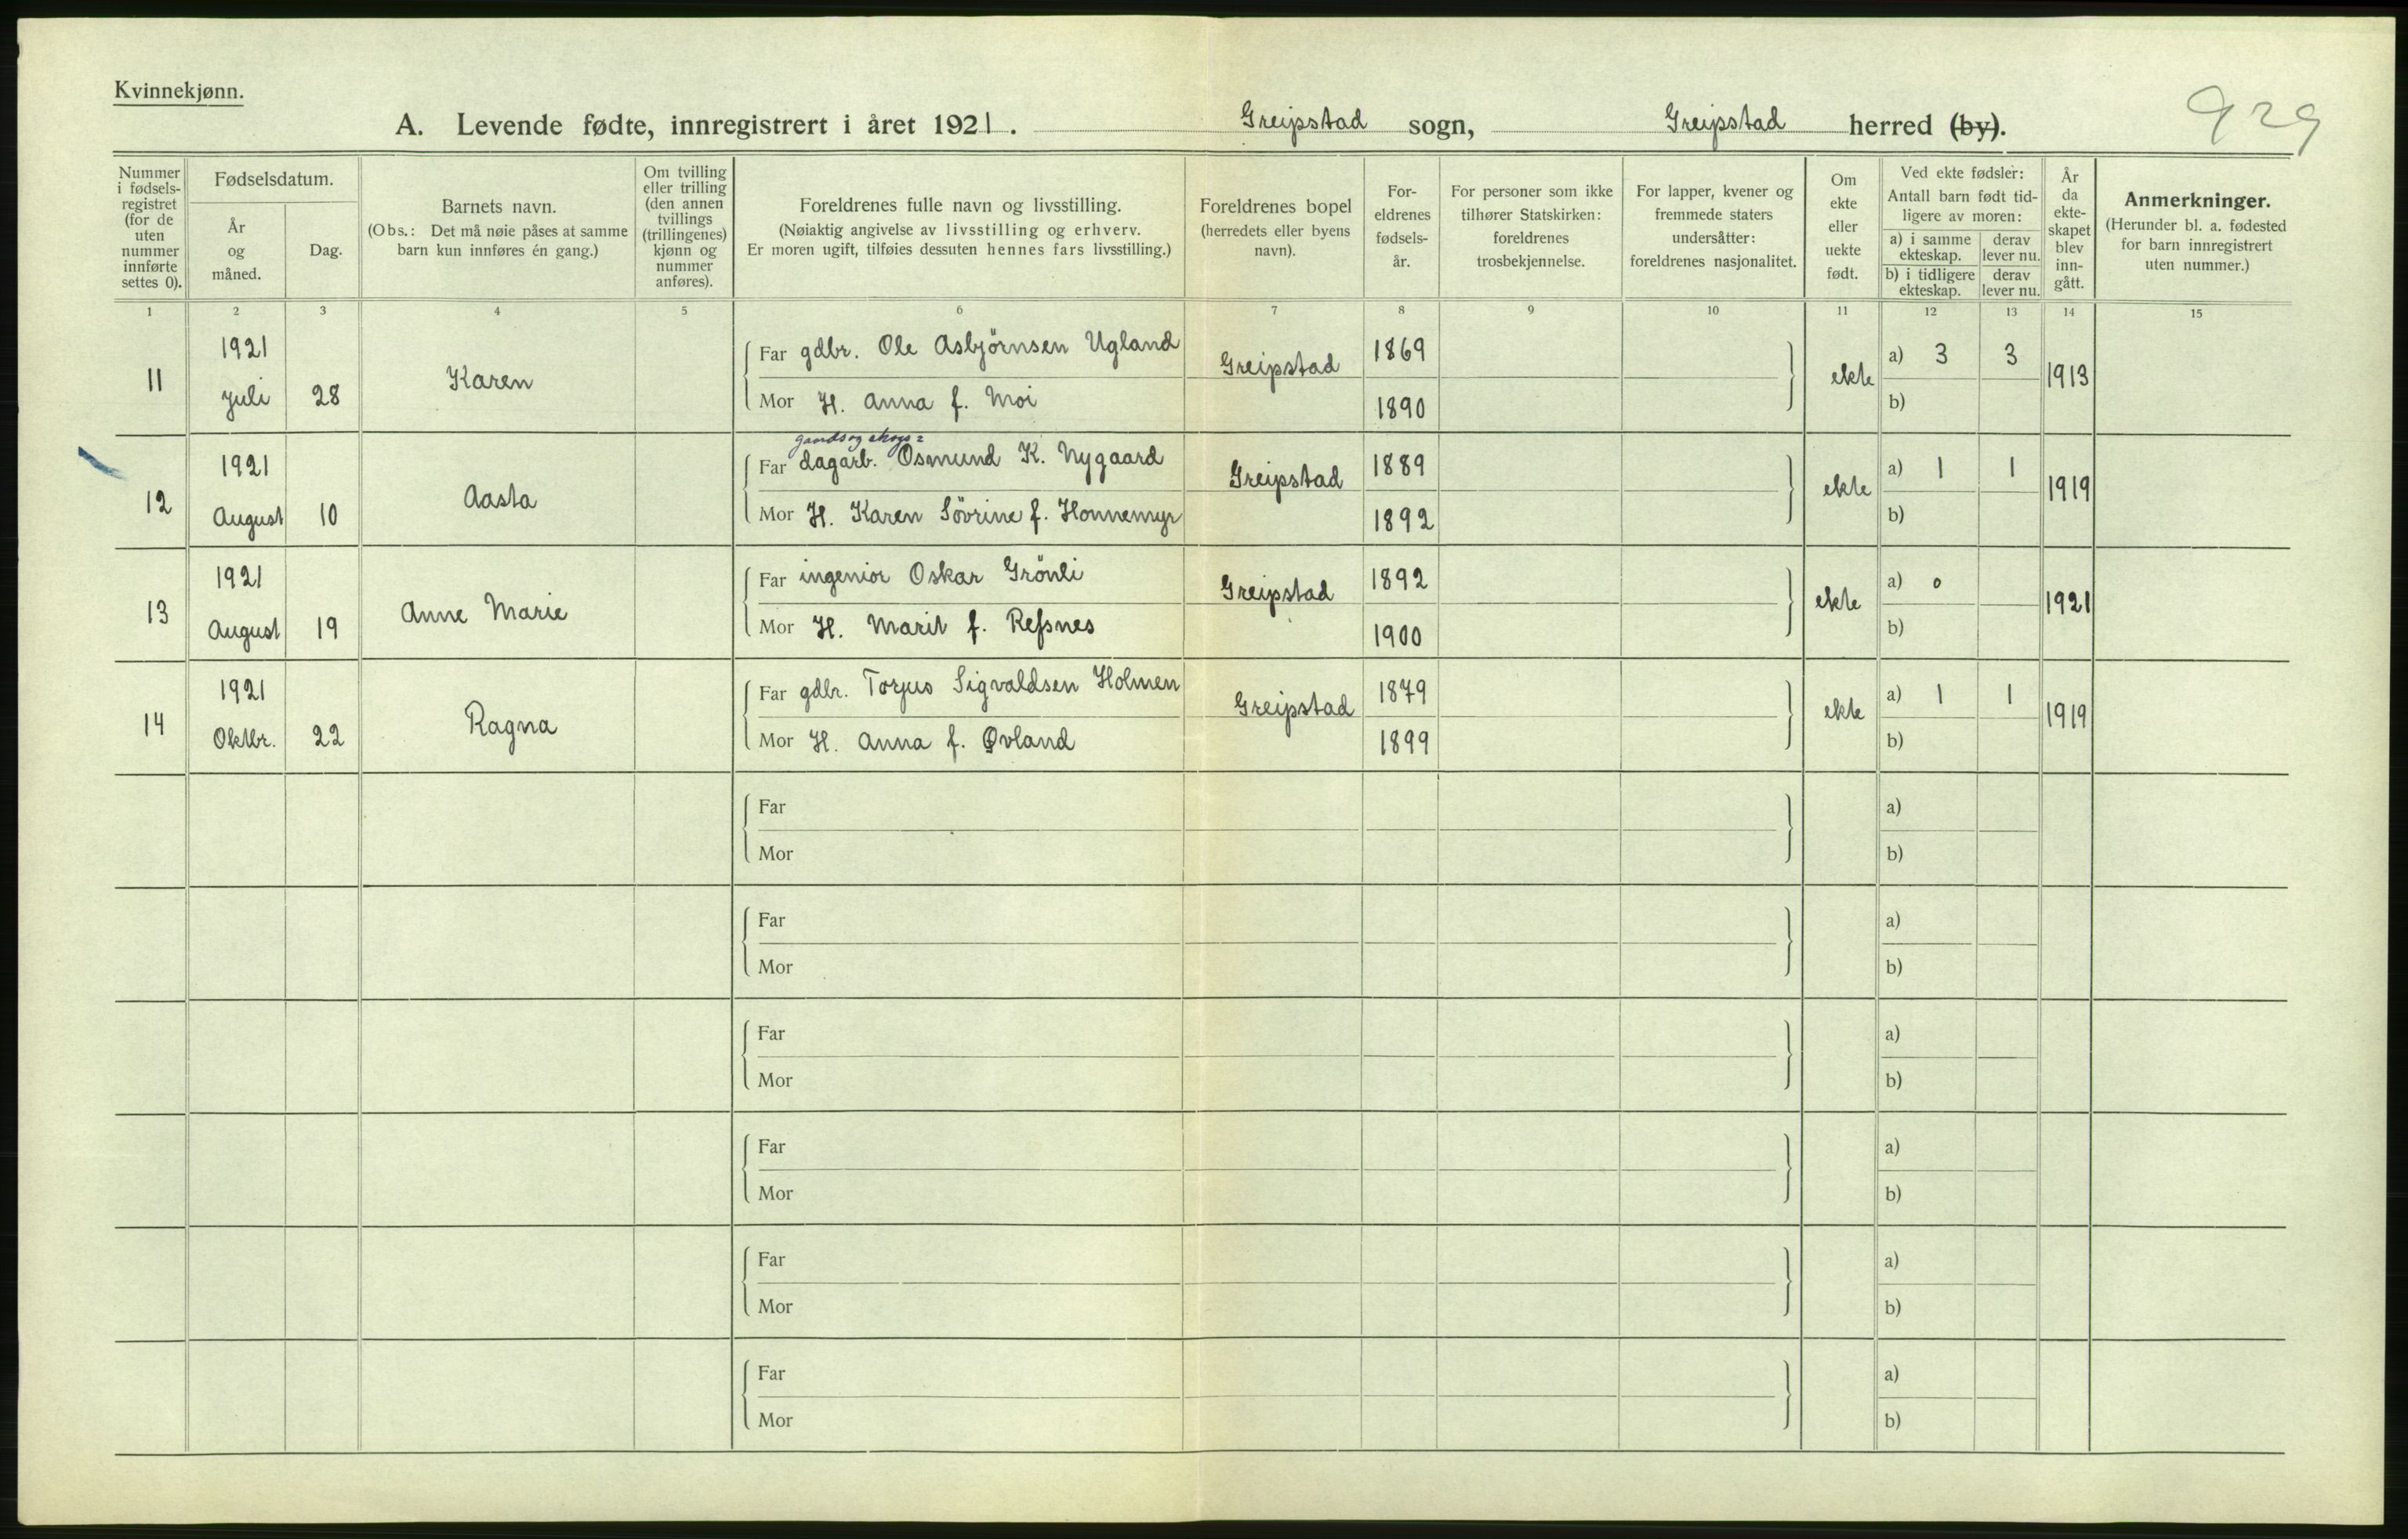 Kvinnekjønn.
929
A. Levende fødte, innregistrert i året 1921. Greipstad sogn, Greipstad herred (by).
Nummer i fødsels-registret (for de uten nummer innførte settes 0).
Fødselsdatum.
År og måned.
Dag.
Barnets navn.
(Obs.: Det må nøie påses at samme barn kun innføres én gang.)
Om tvilling eller trilling (den annen tvillings (trillingenes) kjønn og nummer anføres).
Foreldrenes fulle navn og livsstilling.
(Nøiaktig angivelse av livsstilling og erhverv.
Er moren ugift, tilføies dessuten hennes fars livsstilling.)
Foreldrenes bopel
(herredets eller byens navn).
For-eldrenes fødsels-år.
For personer som ikke tilhører Statskirken: foreldrenes trosbekjennelse.
For lapper, kvener og fremmede staters undersåtter: foreldrenes nasjonalitet.
Om ekte eller uekte født.
Ved ekte fødsler:
Antall barn født tid-ligere av moren:
a) i samme ekteskap.
derav lever nu.
b) i tidligere ekteskap.
derav lever nu.
År da ekte-skapet blev inn-gått.
Anmerkninger.
(Herunder bl. a. fødested for barn innregistrert uten nummer.)
1 2 3 4 5 6 7 8 9 10 11 12 13 14 15
11 1921 Juli 28 Karen
Far gdbr. Ole Asbjörnsen Ugland Greipstad 1869 ekte a) 3 3 1913
Mor H. Anna f. Moi 1890 b)
12 1921 August 10 Aasta
gaards og skogs=
Far dagarb. Osmund K. Nygaard Greipstad 1889 ekte a) 1 1 1919
Mor H. Karen Sövrine f. Honnemyr 1892 b)
13 1921 August 19 Anne Marie
Far ingeniør Oskar Grönli Greipstad 1892 ekte a) 0 1921
Mor H. Marit f. Refsnes 1900 b)
14 1921 Oktbr. 22 Ragna
Far gdbr. Torjus Sigvaldsen Holmen Greipstad 1879 ekte a) 1 1 1919
Mor H. Anna f. Øvland 1899 b)
Far a)
Mor b)
Far a)
Mor b)
Far a)
Mor b)
Far a)
Mor b)
Far a)
Mor b)
Far a)
Mor b)